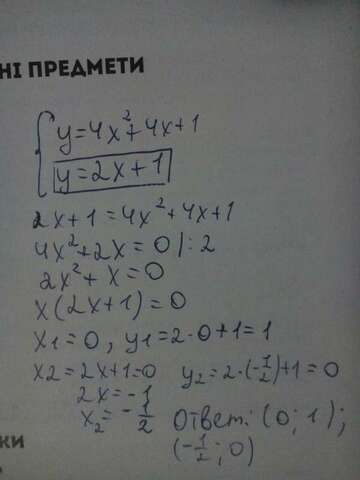 НІ ПРЕДМЕТИ
y=4x²+4x+1
y=2x+1
2x+1=4x²+4x+1
4x²+2x=0 |:2
2x²+x=0
x(2x+1)=0
x1=0, y1=2·0+1=1
x2=2x+1=0 y2=2·(-1/2)+1=0
2x=-1
x2=-1/2 Ответ: (0; 1);
(-1/2; 0)
ки